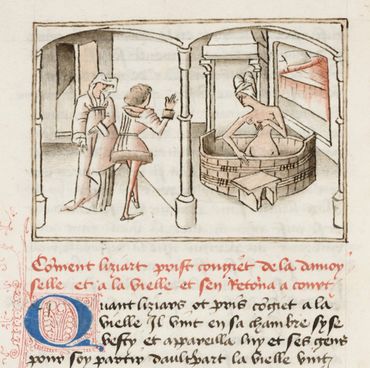 Coment liziart prist congiet de la damoy
selle et a la vielle et sen Retorna a court
Quant liziars ot pris cogiet a la
vielle Il vint en sa chambre sy se
vesty et appareilla luy et ses gens
pour soy partir daultpart la vielle vint